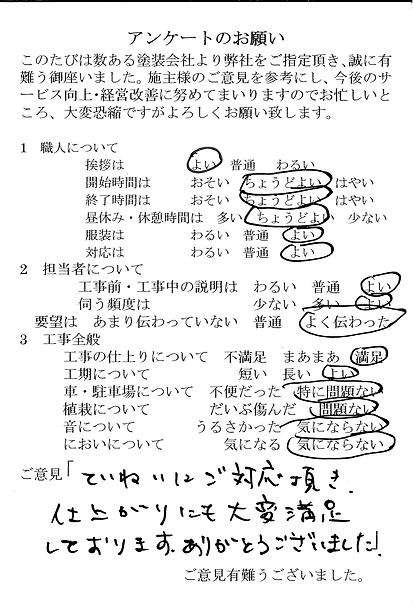 アンケートのお願い
このたびは数ある塗装会社より弊社をご指定頂き、誠に有
難う御座いました。施主様のご意見を参考にし、今後のサ
ービス向上・経営改善に努めてまいりますのでお忙しいと
ころ、大変恐縮ですがよろしくお願い致します。
1 職人について
挨拶は よい 普通 わるい
開始時間は おそい ちょうどよい はやい
終了時間は おそい ちょうどよい はやい
昼休み・休憩時間は 多い ちょうどよい 少ない
服装は わるい 普通 よい
対応は わるい 普通 よい
2 担当者について
工事前・工事中の説明は わるい 普通 よい
伺う頻度は 少ない 多い よい
要望は あまり伝わっていない 普通 よく伝わった
3 工事全般
工事の仕上りについて 不満足 まあまあ 満足
工期について 短い 長い よい
車・駐車場について 不便だった 特に問題ない
植栽について だいぶ傷んだ 問題ない
音について うるさかった 気にならない
においについて 気になる 気にならない
ご意見「ていねいにご対応頂き、
仕上がりにも大変満足
しております。ありがとうございました」
ご意見有難うございました。